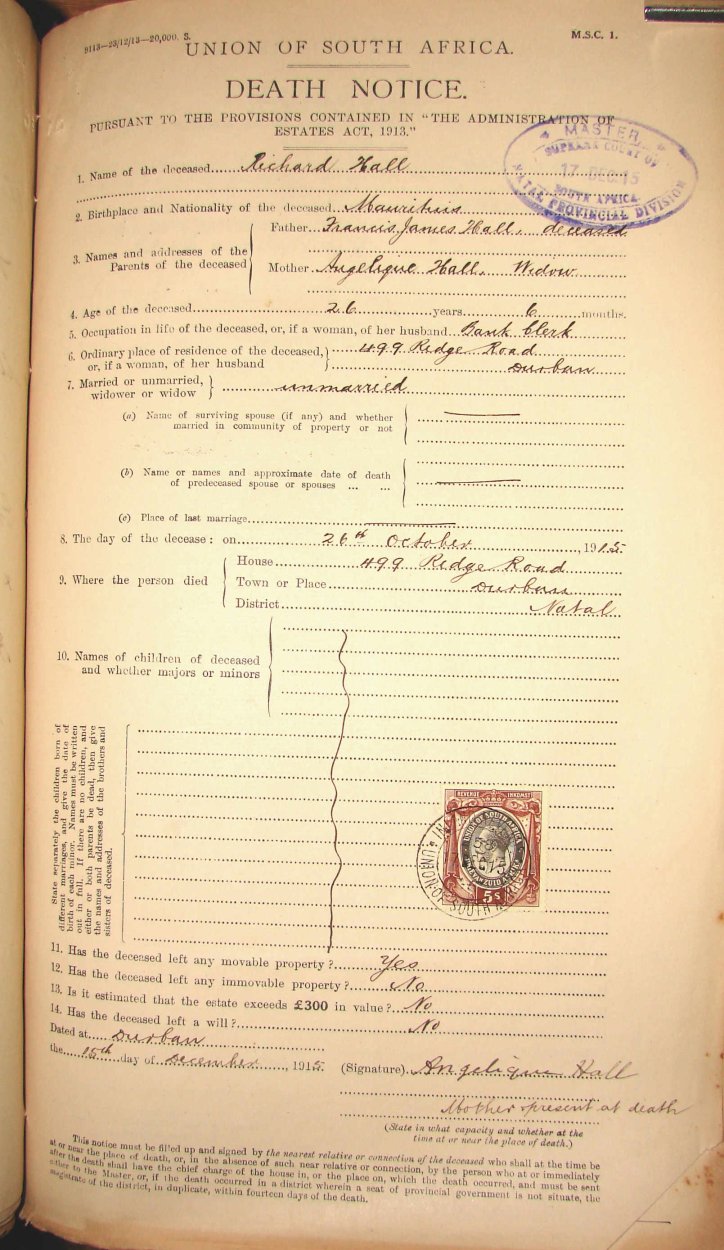 9113—23/12/13—20,000. S.
M.S.C. 1.
UNION OF SOUTH AFRICA.
DEATH NOTICE.
PURSUANT TO THE PROVISIONS CONTAINED IN "THE ADMINISTRATION OF
ESTATES ACT, 1913."
MASTER
SUPREME COURT OF
17 DEC 15
SOUTH AFRICA
NATAL PROVINCIAL DIVISION
1. Name of the deceased Richard Hall
2. Birthplace and Nationality of the deceased Mauritius
3. Names and addresses of the Parents of the deceased
Father Francis James Hall, deceased
Mother Angelique Hall, Widow
4. Age of the deceased 26 years 6 months.
5. Occupation in life of the deceased, or, if a woman, of her husband Bank Clerk
6. Ordinary place of residence of the deceased, 499 Ridge Road
or, if a woman, of her husband Durban
7. Married or unmarried,
widower or widow unmarried
(a) Name of surviving spouse (if any) and whether
married in community of property or not
(b) Name or names and approximate date of death
of predeceased spouse or spouses ... ...
(c) Place of last marriage
8. The day of the decease: on 26th October, 1915
9. Where the person died
House 499 Ridge Road
Town or Place Durban
District Natal
10. Names of children of deceased
and whether majors or minors
State separately the children born of
different marriages, and give the date of
birth of each minor. Names must be written
out in full. If there are no children, and
either or both parents be dead, then give
the names and addresses of the brothers and
sisters of deceased.
REVENUE INKOMST
UNION OF SOUTH AFRICA
UNIE VAN ZUID AFRIKA
5s
11. Has the deceased left any movable property? Yes
12. Has the deceased left any immovable property? No
13. Is it estimated that the estate exceeds £300 in value? No
14. Has the deceased left a will? No
Dated at Durban
the 15th day of December, 1915. (Signature) Angelique Hall
Mother present at death
(State in what capacity and whether at the
time at or near the place of death.)
This notice must be filled up and signed by the nearest relative or connection of the deceased who shall at the time be
at or near the place of death, or, in the absence of such near relative or connection, by the person who at or immediately
after the death shall have the chief charge of the house in, or the place on, which the death occurred, and must be sent
either to the Master, or, if the death occurred in a district wherein a seat of provincial government is not situate, the
magistrate of the district, in duplicate, within fourteen days of the death.